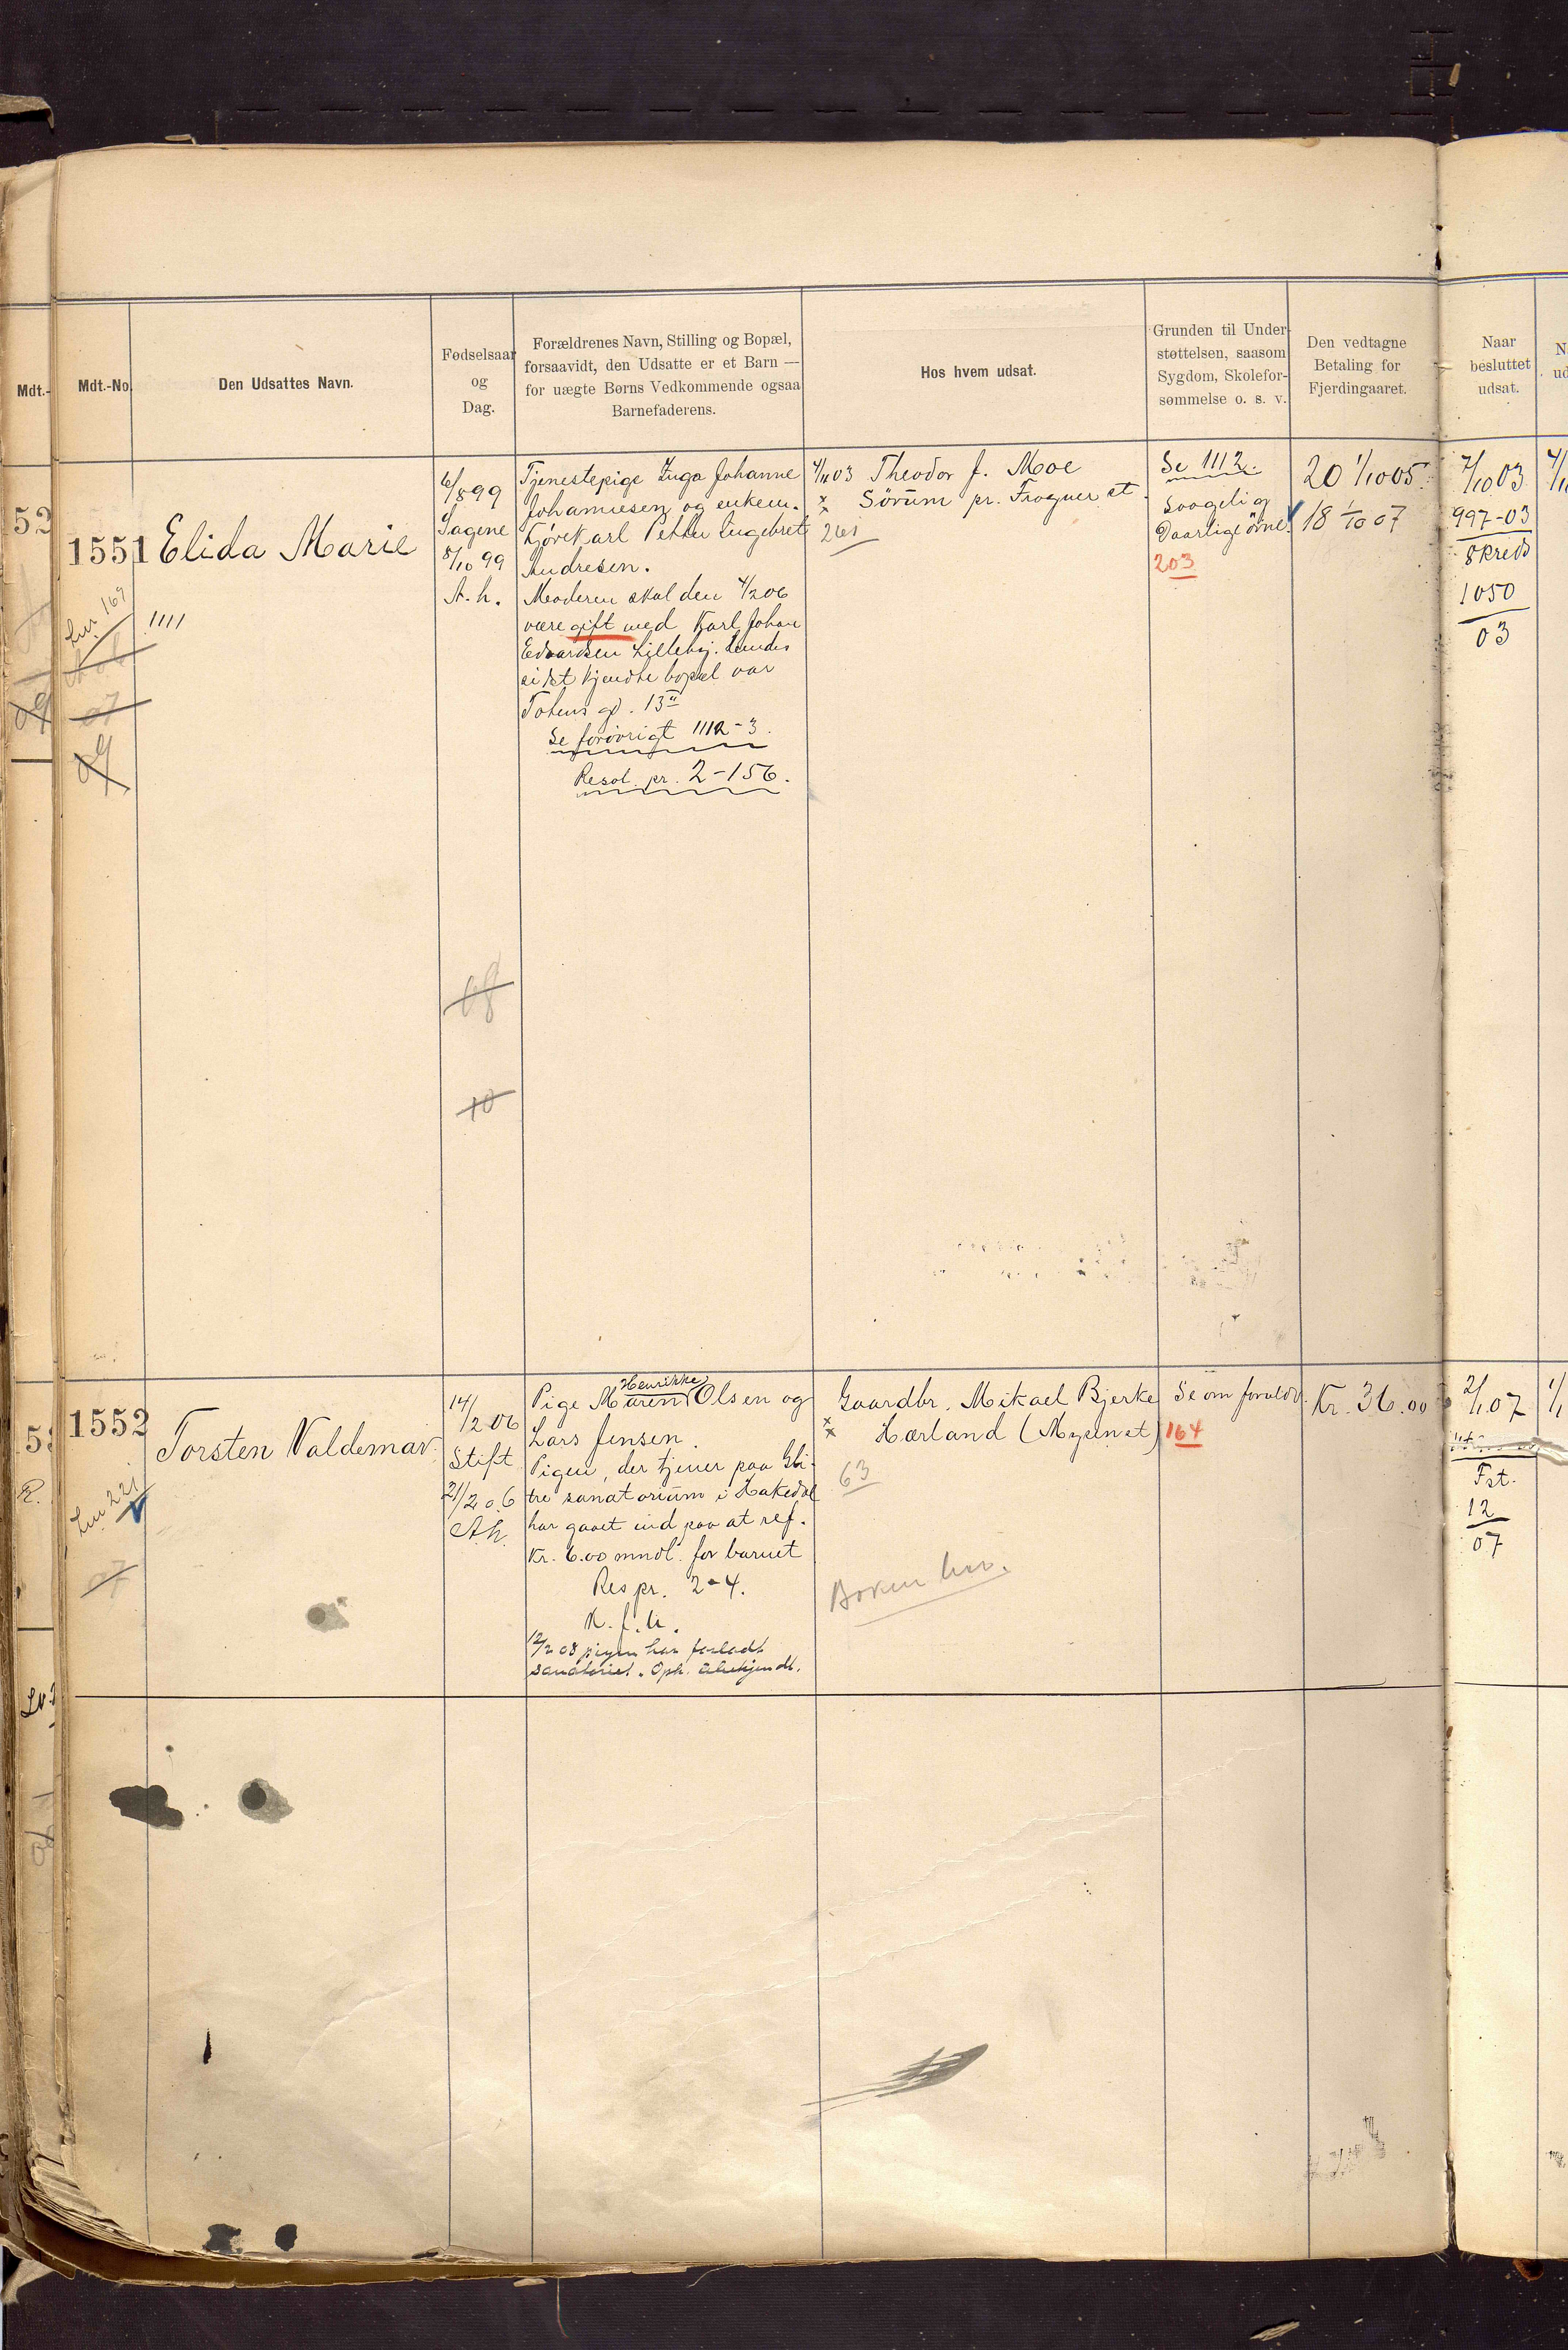 Mdt.-No.
Den Udsattes Navn.
Fødselsaar
og
Dag.
Forældrenes Navn, Stilling og Bopæl,
forsaavidt, den Udsatte er et Barn —
for uægte Børns Vedkommende ogsaa
Barnefaderens.
Hos hvem udsat.
Grunden til Under-
støttelsen, saasom
Sygdom, Skolefor-
sømmelse o. s. v.
Den vedtagne
Betaling for
Fjerdingaaret.
Naar
besluttet
udsat.
Mdt.-
52
1551
Elida Marie
1111
169
07
09
6/8 99
Sagene
8/10 99
A. h.
08
10
Tjenestepige Inga Johanne
Johannesen og enkem.
Kjørekarl Petter Ingebret
Andresen.
Moderen skal den 4/2 06
være gift med Karl Johan
Edvardsen Lilleby. Hendes
sidst kjendte bopæl var
Totens gd. 13 II
Se forøvrigt 1112-3.
Resol. pr. 2-156.
4/11 03 Theodor J. Moe
Sørum pr. Frogner st.
261
Se 1112.
Svagelig
Daarlige øine.
203
20 1/10 05.
18 1/10 07
7/10 03
997-03
8 Kreds
1050
03
1552
Torsten Valdemar.
221
07
14/2 06
Stift
21/2 06
A.h.
Pige Maren Henrikke Olsen og
Lars Jensen.
Pigen, der tjener paa Gli-
tre sanatorium i Hakedal
har gaaet ind paa at ref.
Kr. 6.00 mndl. for barnet
Res pr. 2-4.
K. f. u.
12/2 08 pigen har forladt
sanatoriet. Oph. ubekjendt.
Gaardbr. Mikael Bjerke
Hærland (Mysen st)
63
Se om foræld.
164
Kr. 36.00
2/1 07
Fst.
12
07